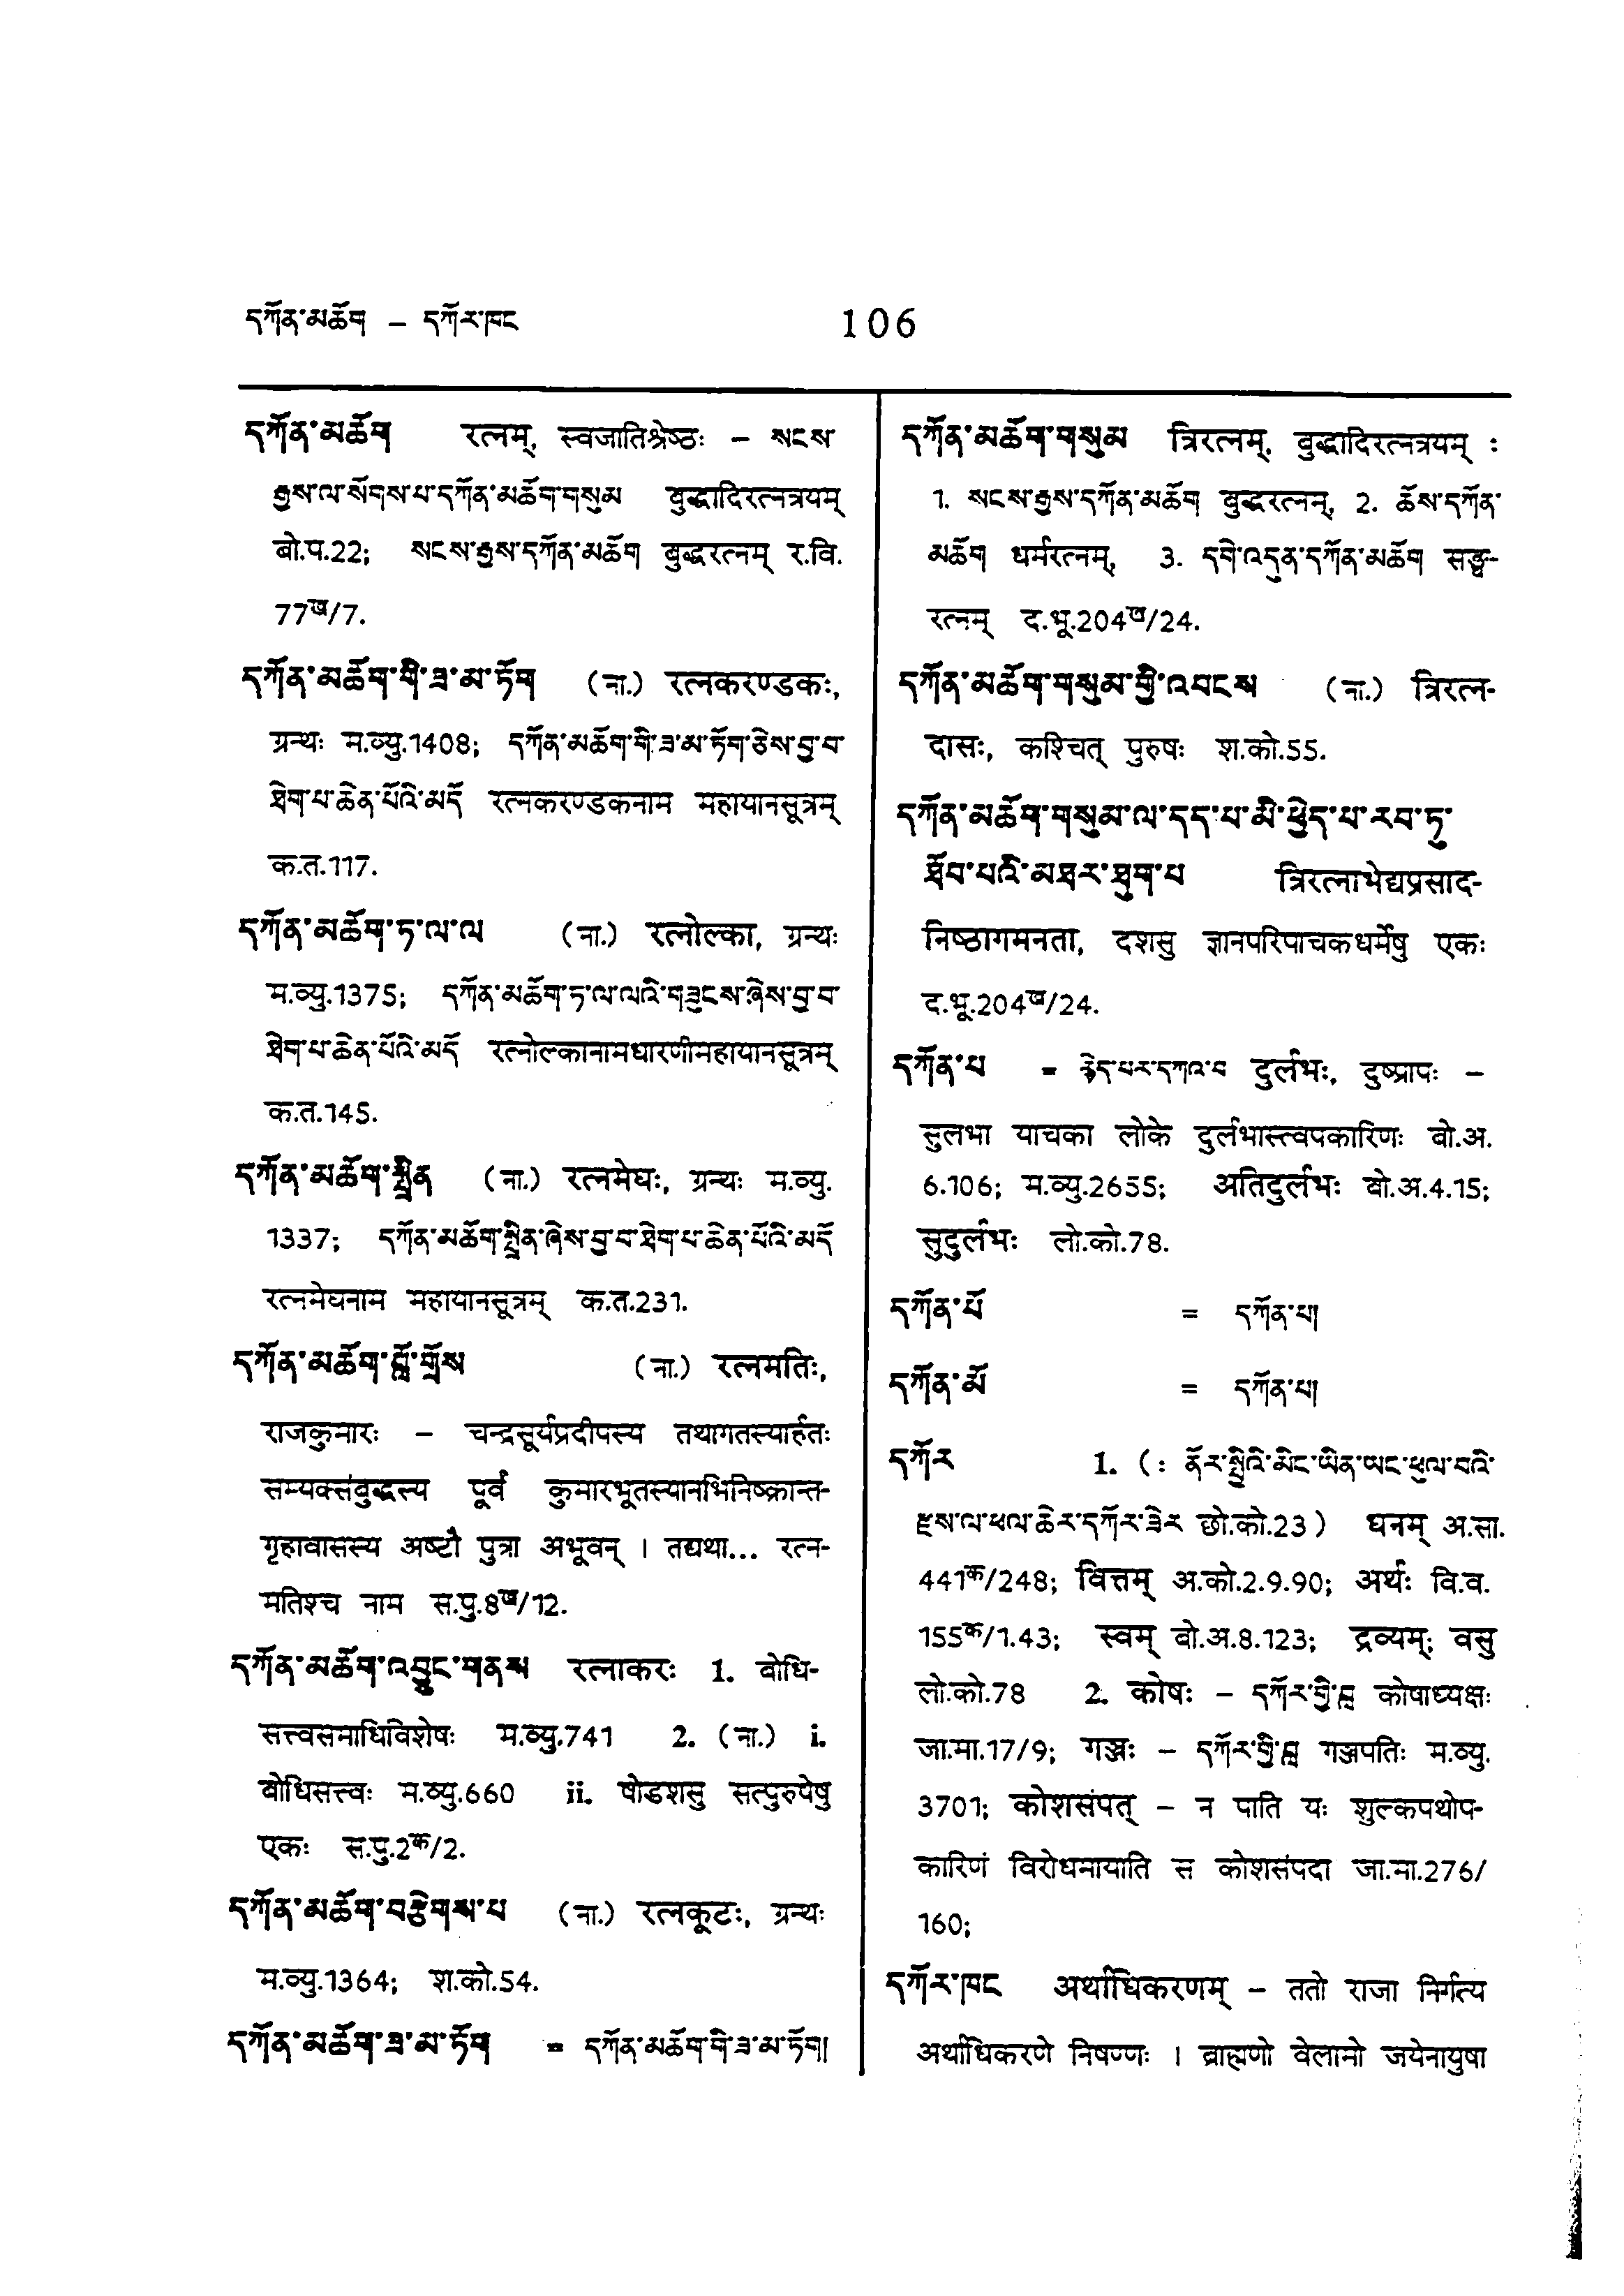 དཀོན་མཆོག – དཀོར་ཁང 106
དཀོན་མཆོག रत्नम्, स्वजातिश्रेष्ठः – སངས་
རྒྱས་ལ་སོགས་པ་དཀོན་མཆོག་གསུམ बुद्धादिरत्नत्रयम्
बो.प.22; སངས་རྒྱས་དཀོན་མཆོག बुद्धरत्नम् र.वि.
77ख/7.
དཀོན་མཆོག་གི་ཟ་མ་ཏོག (ना.) रत्नकरण्डकः,
ग्रन्थः म.व्यु.1408; དཀོན་མཆོག་གི་ཟ་མ་ཏོག་ཅེས་བྱ་བ་
ཐེག་པ་ཆེན་པོའི་མདོ रत्नकरण्डकनाम महायानसूत्रम्
क.त.117.
དཀོན་མཆོག་ཏ་ལ་ལ (ना.) रत्नोल्का, ग्रन्थः
म.व्यु.1375; དཀོན་མཆོག་ཏ་ལ་ལའི་གཟུངས་ཞེས་བྱ་བ་
ཐེག་པ་ཆེན་པོའི་མདོ रत्नोल्कानामधारणीमहायानसूत्रम्
क.त.145.
དཀོན་མཆོག་སྤྲིན (ना.) रत्नमेघः, ग्रन्थः म.व्यु.
1337; དཀོན་མཆོག་སྤྲིན་ཞེས་བྱ་བ་ཐེག་པ་ཆེན་པོའི་མདོ
रत्नमेघनाम महायानसूत्रम् क.त.231.
དཀོན་མཆོག་བློ་གྲོས (ना.) रत्नमतिः,
राजकुमारः – चन्द्रसूर्यप्रदीपस्य तथागतस्यार्हतः
सम्यक्संबुद्धस्य पूर्वं कुमारभूतस्यानभिनिष्क्रान्त-
गृहावासस्य अष्टौ पुत्रा अभूवन् । तद्यथा... रत्न-
मतिश्च नाम स.पु.8ख/12.
དཀོན་མཆོག་འབྱུང་གནས रत्नाकरः 1. बोधि-
सत्त्वसमाधिविशेषः म.व्यु.741 2. (ना.) i.
बोधिसत्त्वः म.व्यु.660 ii. षोडशसु सत्पुरुषेषु
एकः स.पु.2क/2.
དཀོན་མཆོག་བརྩེགས་པ (ना.) रत्नकूटः, ग्रन्थः
म.व्यु.1364; श.को.54.
དཀོན་མཆོག་ཟ་མ་ཏོག = དཀོན་མཆོག་གི་ཟ་མ་ཏོག།
དཀོན་མཆོག་གསུམ त्रिरत्नम्, बुद्धादिरत्नत्रयम् :
1. སངས་རྒྱས་དཀོན་མཆོག बुद्धरत्नम्, 2. ཆོས་དཀོན་
མཆོག धर्मरत्नम्, ३. དགེ་འདུན་དཀོན་མཆོག सङ्घ-
रत्नम् द.भू.204ख/24.
དཀོན་མཆོག་གསུམ་གྱི་འབངས (ना.) त्रिरत्न-
दासः, कश्चित् पुरुषः श.को.55.
དཀོན་མཆོག་གསུམ་ལ་དད་པ་མི་ཕྱེད་པ་རབ་ཏུ་
ཐོབ་པའི་མཐར་ཐུག་པ त्रिरत्नाभेद्यप्रसाद-
निष्ठागमनता, दशसु ज्ञानपरिपाचकधर्मेषु एकः
द.भू.204ख/24.
དཀོན་པ = རྙེད་པར་དཀའ་བ दुर्लभः, दुष्प्रापः –
सुलभा याचका लोके दुर्लभास्त्वपकारिणः बो.अ.
6.106; म.व्यु.2655; अतिदुर्लभः बो.अ.4.15;
सुदुर्लभः लो.को.78.
དཀོན་པོ = དཀོན་པ།
དཀོན་མོ = དཀོན་པ།
དཀོར 1. (: ནོར་སྤྱིའི་མིང་ཡིན་ཡང་ཕུལ་བའི་
རྫས་ལ་ཕལ་ཆེར་དཀོར་ཟེར छो.को.23) धनम् अ.सा.
441क/248; वित्तम् अ.को.2.9.90; अर्थः वि.व.
155क/1.43; स्वम् बो.अ.8.123; द्रव्यम्; वसु
लो.को.78 2. कोषः – དཀོར་གྱི་བླ कोषाध्यक्षः
जा.मा.17/9; गञ्जः – དཀོར་གྱི་བླ गञ्जपतिः म.व्यु.
3701; कोशसंपत् – न पाति यः शुल्कपथोप-
कारिणं विरोधमायाति स कोशसंपदा जा.मा.276/
160;
དཀོར་ཁང अर्थाधिकरणम् – ततो राजा निर्गत्य
अर्थाधिकरणे निषण्णः । ब्राह्मणो वेलामो जयेनायुषा